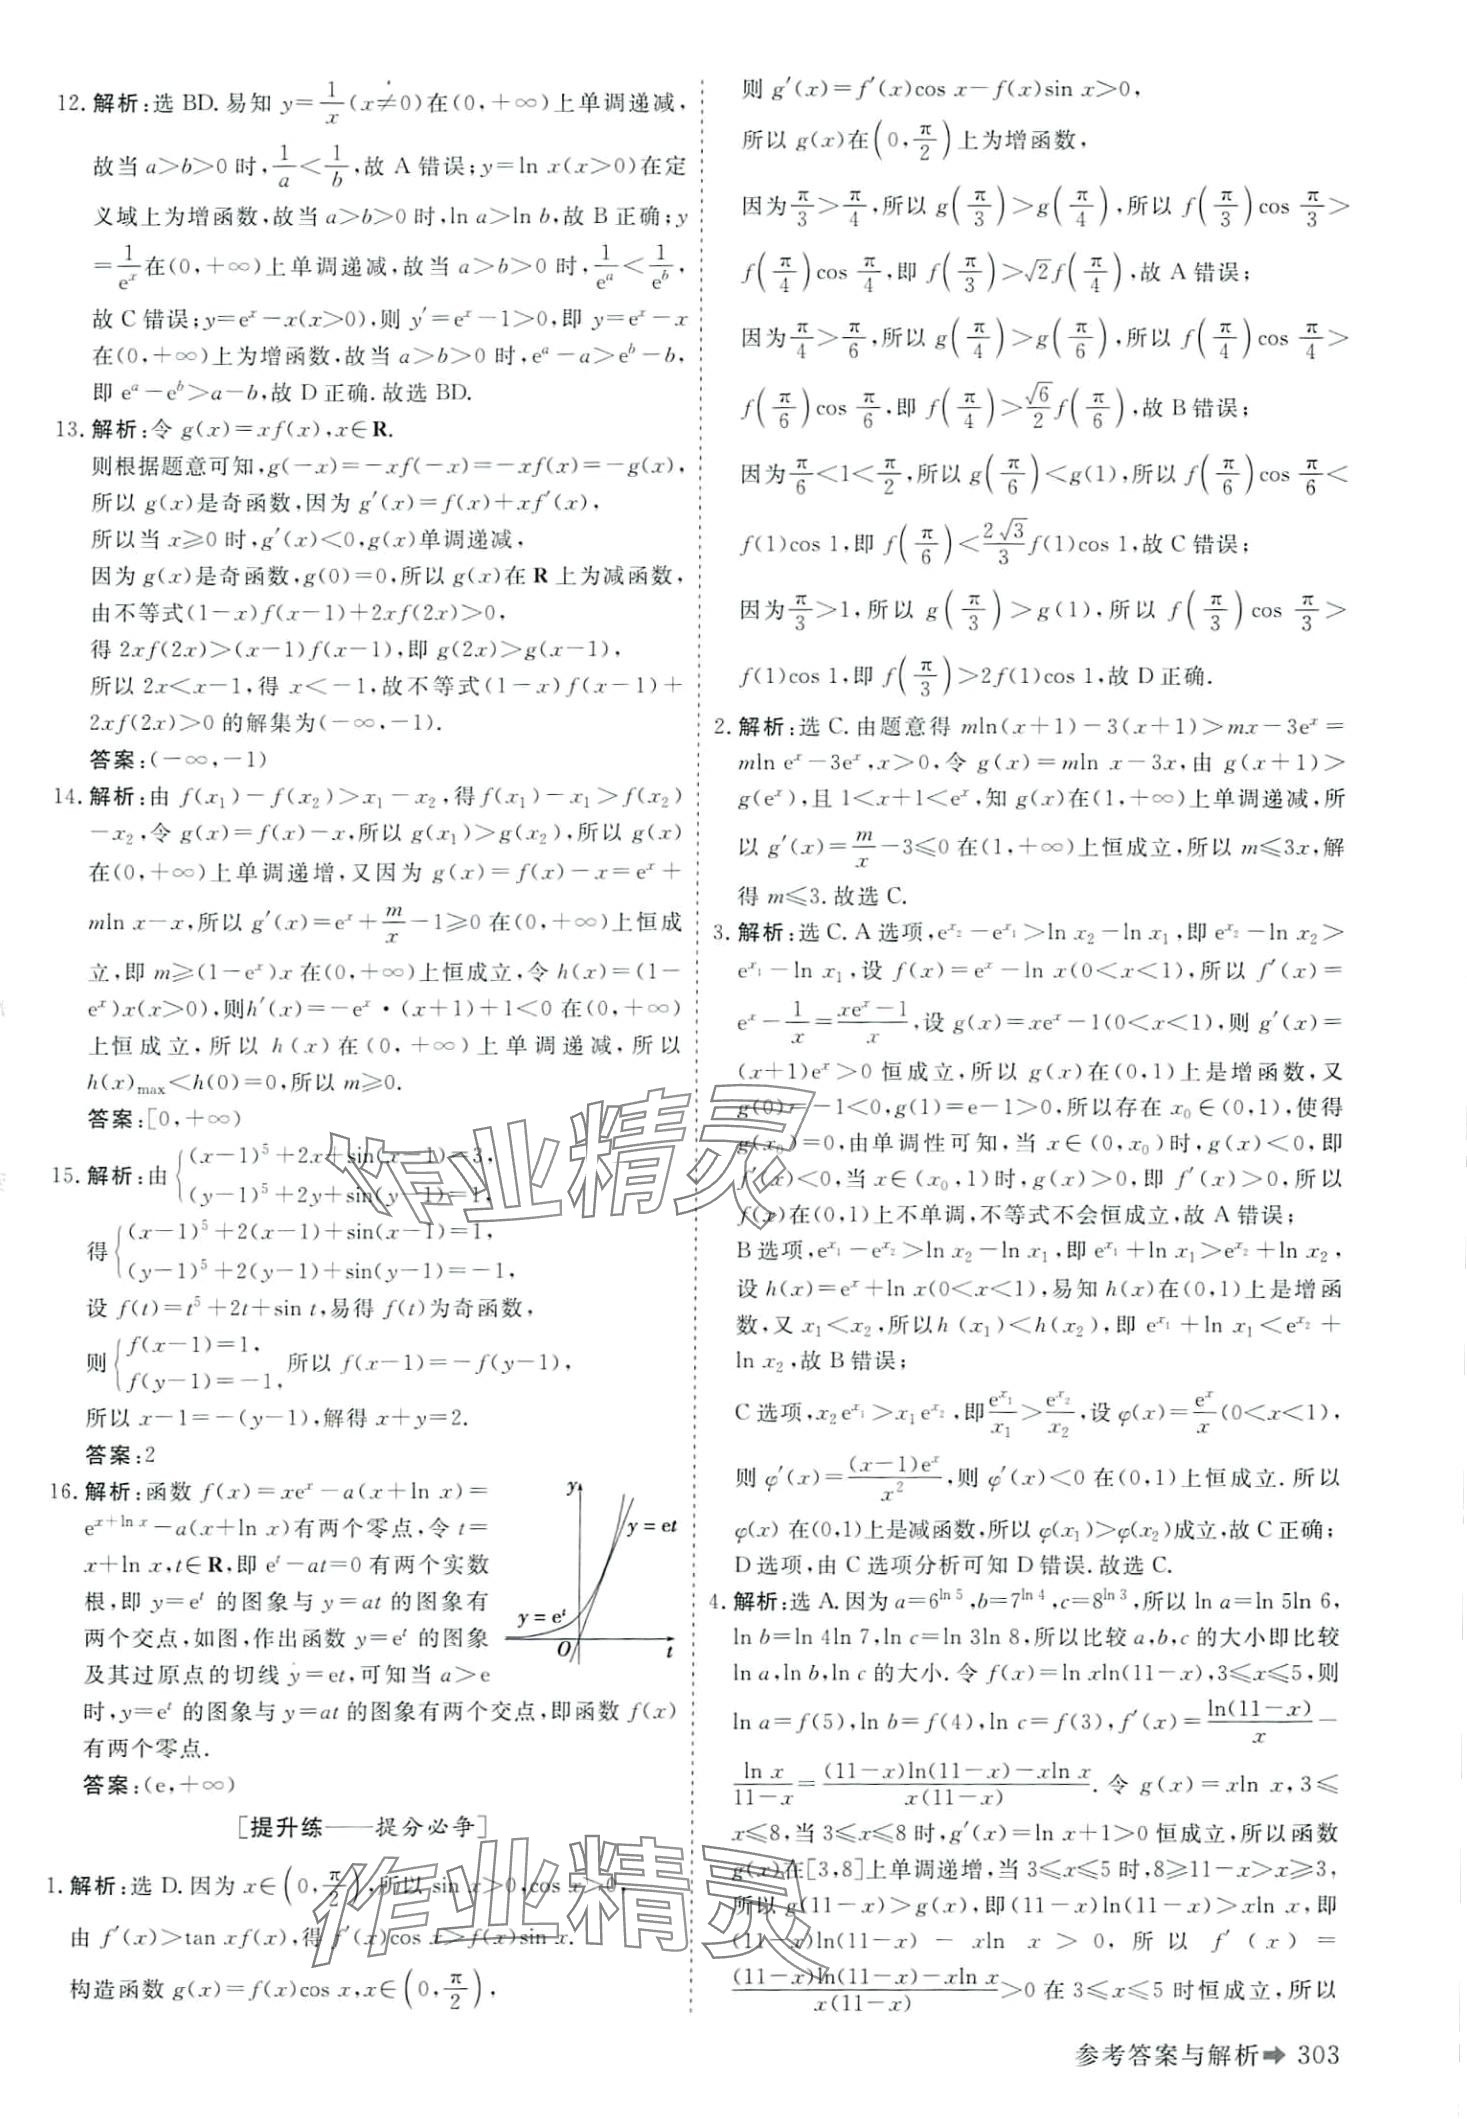 12. 解析:选 BD. 易知 y=1/x(x≠0)在(0,+∞)上单调递减,
故当 a>b>0 时,1/a<1/b,故 A 错误;y=ln x(x>0)在定
义域上为增函数,故当 a>b>0 时,ln a>ln b,故 B 正确;y
=1/eˣ在(0,+∞)上单调递减,故当 a>b>0 时,1/eᵃ<1/eᵇ,
故 C 错误;y=eˣ-x(x>0),则 y′=eˣ-1>0,即 y=eˣ-x
在(0,+∞)上为增函数,故当 a>b>0 时,eᵃ-a>eᵇ-b,
即 eᵃ-eᵇ>a-b,故 D 正确.故选 BD.
13. 解析:令 g(x)=xf(x),x∈R.
则根据题意可知,g(-x)=-xf(-x)=-xf(x)=-g(x),
所以 g(x)是奇函数,因为 g′(x)=f(x)+xf′(x),
所以当 x≥0 时,g′(x)<0,g(x)单调递减,
因为 g(x)是奇函数,g(0)=0,所以 g(x)在 R 上为减函数,
由不等式(1-x)f(x-1)+2xf(2x)>0,
得 2xf(2x)>(x-1)f(x-1),即 g(2x)>g(x-1),
所以 2x<x-1,得 x<-1,故不等式(1-x)f(x-1)+
2xf(2x)>0 的解集为(-∞,-1).
答案:(-∞,-1)
14. 解析:由 f(x₁)-f(x₂)>x₁-x₂,得f(x₁)-x₁>f(x₂)
-x₂,令 g(x)=f(x)-x,所以 g(x₁)>g(x₂),所以 g(x)
在(0,+∞)上单调递增,又因为 g(x)=f(x)-x=eˣ+
mln x-x,所以 g′(x)=eˣ+m/x-1≥0 在(0,+∞)上恒成
立,即 m≥(1-eˣ)x 在(0,+∞)上恒成立,令 h(x)=(1-
eˣ)x(x>0),则h′(x)=-eˣ·(x+1)+1<0 在(0,+∞)
上恒成立,所以 h(x)在(0,+∞)上单调递减,所以
h(x)max<h(0)=0,所以 m≥0.
答案:[0,+∞)
15. 解析:由{(x-1)⁵+2x+sin(x-1)=3,
(y-1)⁵+2y+sin(y-1)=1,
得{(x-1)⁵+2(x-1)+sin(x-1)=1,
(y-1)⁵+2(y-1)+sin(y-1)=-1,
设 f(t)=t⁵+2t+sin t,易得 f(t)为奇函数,
则{f(x-1)=1,
f(y-1)=-1, 所以 f(x-1)=-f(y-1),
所以 x-1=-(y-1),解得 x+y=2.
答案:2
16. 解析:函数 f(x)=xeˣ-a(x+ln x)=
e^(x+ln x)-a(x+ln x)有两个零点,令 t=
x+ln x,t∈R,即 eᵗ-at=0 有两个实数
根,即 y=eᵗ 的图象与 y=at 的图象有
两个交点,如图,作出函数 y=eᵗ 的图象
及其过原点的切线 y=et,可知当 a>e
时,y=eᵗ 的图象与 y=at 的图象有两个交点,即函数 f(x)
有两个零点.
y
y=et
y=eᵗ
O
t
答案:(e,+∞)
[提升练——提分必争]
1. 解析:选 D. 因为 x∈(0,π/2),所以 sin x>0,cos x>0,
由 f′(x)>tan xf(x),得 f′(x)cos x>f(x)sin x.
构造函数 g(x)=f(x)cos x,x∈(0,π/2),
则 g′(x)=f′(x)cos x-f(x)sin x>0,
所以 g(x)在(0,π/2)上为增函数,
因为π/3>π/4,所以 g(π/3)>g(π/4),所以 f(π/3)cos π/3>
f(π/4)cos π/4,即 f(π/3)>√2f(π/4),故 A 错误;
因为π/4>π/6,所以 g(π/4)>g(π/6),所以 f(π/4)cos π/4>
f(π/6)cos π/6,即 f(π/4)>√6/2 f(π/6),故 B 错误;
因为π/6<1<π/2,所以 g(π/6)<g(1),所以 f(π/6)cos π/6<
f(1)cos 1,即 f(π/6)<2√3/3 f(1)cos 1,故 C 错误;
因为π/3>1,所以 g(π/3)>g(1),所以 f(π/3)cos π/3>
f(1)cos 1,即 f(π/3)>2f(1)cos 1,故 D 正确.
2. 解析:选 C. 由题意得 mln(x+1)-3(x+1)>mx-3eˣ=
mln eˣ-3eˣ,x>0,令 g(x)=mln x-3x,由 g(x+1)>
g(eˣ),且 1<x+1<eˣ,知 g(x)在(1,+∞)上单调递减,所
以 g′(x)=m/x-3≤0 在(1,+∞)上恒成立,所以 m≤3x,解
得 m≤3.故选 C.
3. 解析:选 C. A 选项,e^x₂-e^x₁>ln x₂-ln x₁,即 e^x₂-ln x₂>
e^x₁-ln x₁,设 f(x)=eˣ-ln x(0<x<1),所以 f′(x)=
eˣ-1/x=(xeˣ-1)/x,设 g(x)=xeˣ-1(0<x<1),则 g′(x)=
(x+1)eˣ>0 恒成立,所以 g(x)在(0,1)上是增函数,又
g(0)=-1<0,g(1)=e-1>0,所以存在 x₀∈(0,1),使得
g(x₀)=0,由单调性可知,当 x∈(0,x₀)时,g(x)<0,即
f′(x)<0,当 x∈(x₀,1)时,g(x)>0,即 f′(x)>0,所以
f(x)在(0,1)上不单调,不等式不会恒成立,故 A 错误;
B 选项,e^x₁-e^x₂>ln x₂-ln x₁,即 e^x₁+ln x₁>e^x₂+ln x₂,
设 h(x)=eˣ+ln x(0<x<1),易知 h(x)在(0,1)上是增函
数,又 x₁<x₂,所以h(x₁)<h(x₂),即 e^x₁+ln x₁<e^x₂+
ln x₂,故 B 错误;
C 选项,x₂e^x₁>x₁e^x₂,即e^x₁/x₁>e^x₂/x₂,设 φ(x)=eˣ/x(0<x<1),
则 φ′(x)=(x-1)eˣ/x²,则 φ′(x)<0 在(0,1)上恒成立.所以
φ(x)在(0,1)上是减函数,所以 φ(x₁)>φ(x₂)成立,故 C 正确;
D 选项,由 C 选项分析可知 D 错误.故选 C.
4. 解析:选 A. 因为 a=6^(ln 5),b=7^(ln 4),c=8^(ln 3),所以 ln a=ln 5ln 6,
ln b=ln 4ln 7,ln c=ln 3ln 8,所以比较 a,b,c 的大小即比较
ln a,ln b,ln c 的大小.令 f(x)=ln xln(11-x),3≤x≤5,则
ln a=f(5),ln b=f(4),ln c=f(3),f′(x)=ln(11-x)/x-
ln x/(11-x)=((11-x)ln(11-x)-xln x)/(x(11-x)).令 g(x)=xln x,3≤
x≤8,当 3≤x≤8 时,g′(x)=ln x+1>0 恒成立,所以函数
g(x)在[3,8]上单调递增,当 3≤x≤5 时,8≥11-x>x≥3,
所以 g(11-x)>g(x),所以(11-x)ln(11-x)>xln x,即
(11-x)ln(11-x)-xln x>0,所以 f′(x)=
((11-x)ln(11-x)-xln x)/(x(11-x))>0 在 3≤x≤5 时恒成立,所以
作业精灵
作业精灵
参考答案与解析➡303